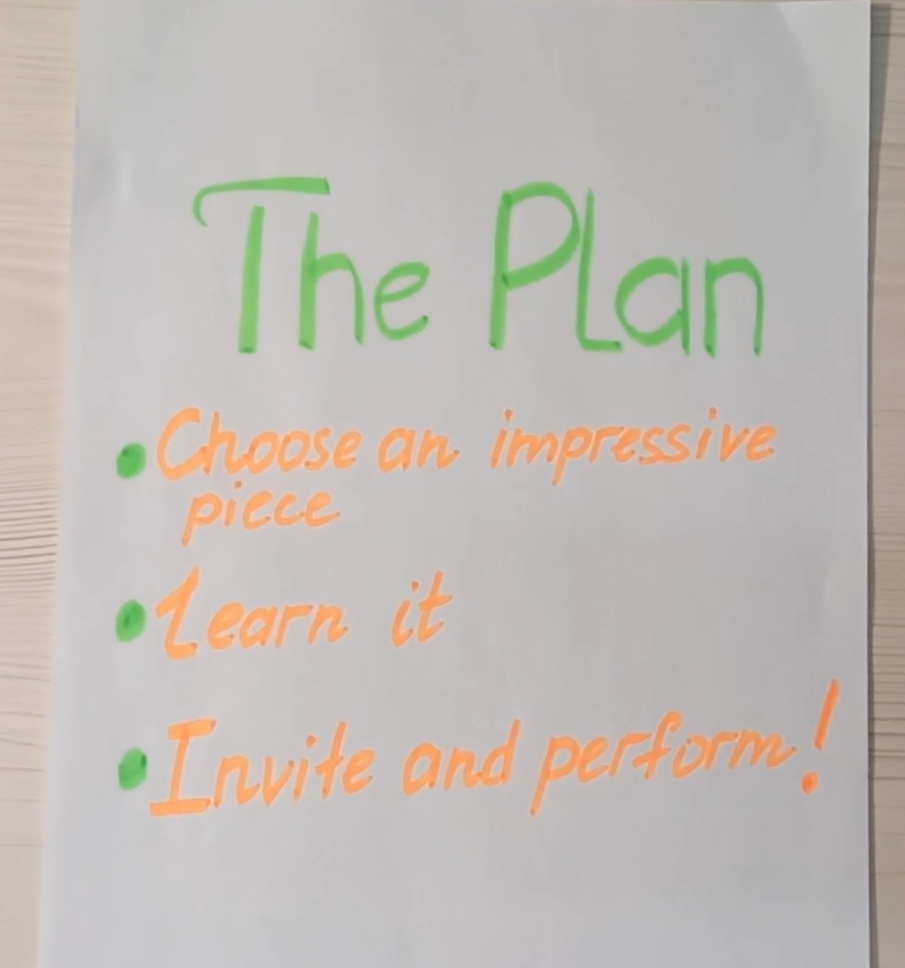 The Plan
• Choose an impressive
piece
• Learn it
• Invite and perform!